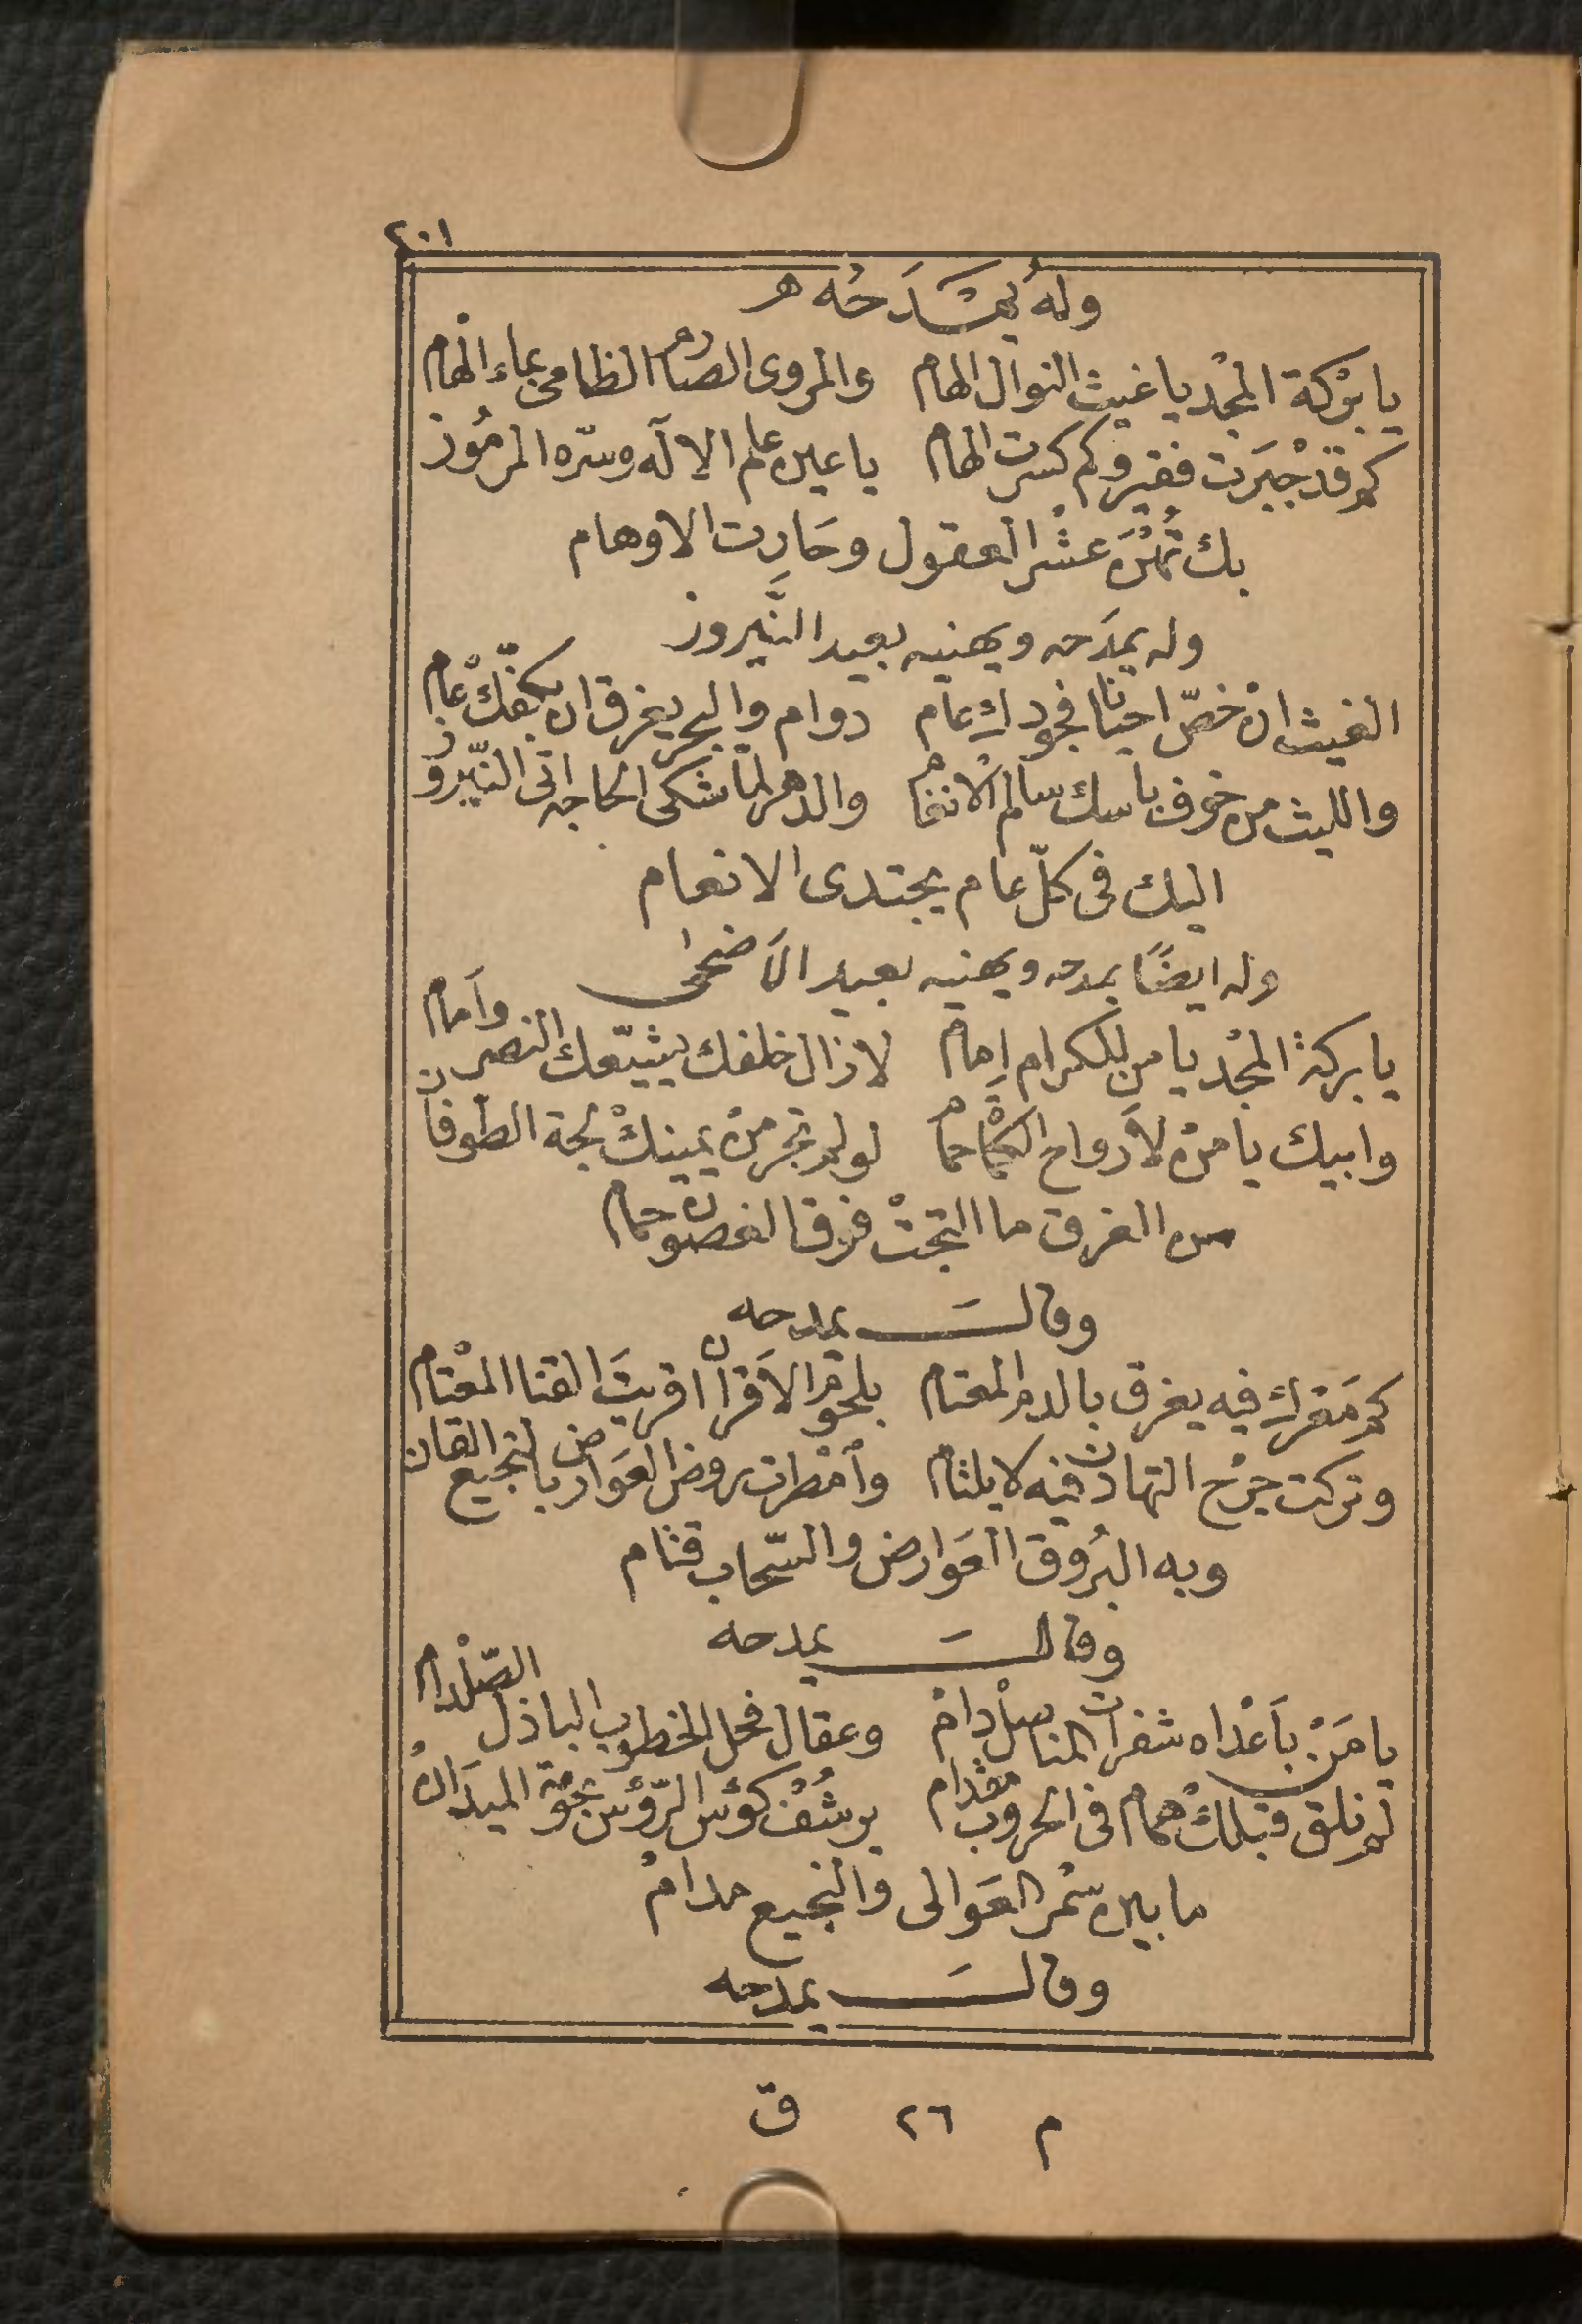 ٢٠١
وله يمدَحُه
يا بركة المجد يا غيث النوال الهام والمروى الصّارم الظامى بماء الهام
كم قد جبَرت فقير وكم كسرت الهام يا عين علم الاله وسرّه المرمُوز
بك عشر العقول وحَارت الاوهام
وله يمدَحه ويهنيه بعيد النَّيروز
الغيث ان خصّ احيانا فجودك عام دوام والبحر يغرق ان بكفّك عام
والليث من خوف باسك سالم الانغام والدهر لمّا شكى الحاجه اتى النّيروز
اليك فى كلّ عام يجتدى الانعام
وله ايضًا يمدحه ويهنيه بعيد الاَضحٰى
يا بركة المجْد يا من للكرام اِمام لازال خلفك يشيّعك النصر واَمام
وابيك يا منْ لاَرواح الكماة حمام لولم تجر منْ يمينكْ لجة الطوفان
من الغرق ما التجتْ فوق الغصون حمام
وقالَ يمدحه
كم مَعْرك فيه يغرق بالدم المعتام بلحوم الاَقران اقريتَ القنا المعْتام
وتركت جرْح التهادن فيه لا يلتام وأمْطرت روض العَوارض بالنجيع القان
وبه البُروق العَوارض والسّحاب قتام
وقالَ يمدحه
يا مَنْ بأعْداه شفرات المناسل دامْ وعقال فحل الخطوب الباذل الصّلْدام
لم نلق قبلكْ همام فى الحروب مقدام يرشُفْ كوْس الرّوُس بحومة الميدَانْ
ما بين سُمْر العَوالى والنجيع مدامْ
وقالَ يمدحه
م ٢٦ ق